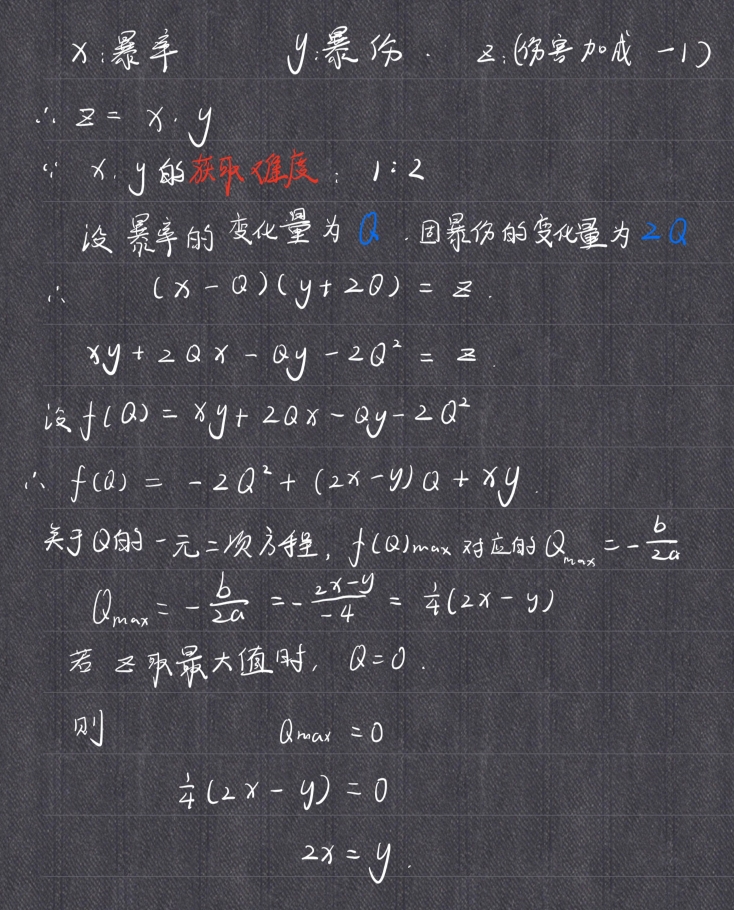 x:暴率 y:暴伤. z:(伤害加成 -1)
∴ z = x·y
∵ x.y的获取难度: 1:2
设暴率的变化量为Q.因暴伤的变化量为2Q
∴ (x-Q)(y+2Q) = z.
xy+2Qx-Qy-2Q² = z.
设f(Q) = xy+2Qx-Qy-2Q²
∴ f(Q) = -2Q²+(2x-y)Q+xy.
关于Q的一元二次方程, f(Q)max对应的Qmax = -b/2a
Qmax = -b/2a = -2x-y/-4 = 1/4(2x-y)
若z取最大值时, Q=0.
则 Qmax = 0
1/4(2x-y) = 0
2x = y.